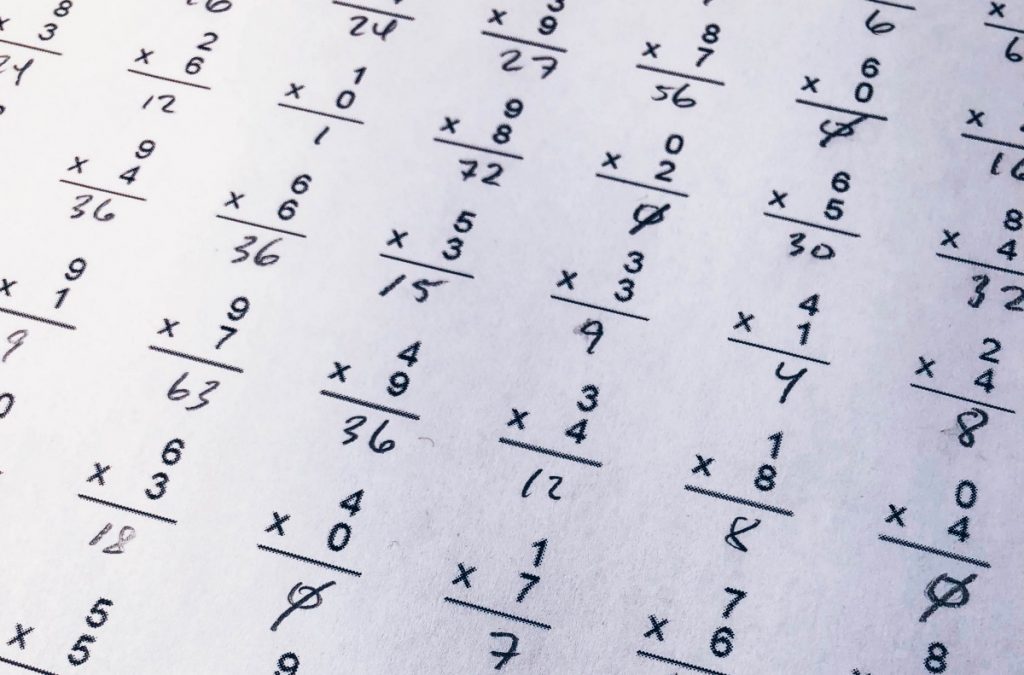 6 6
8 6
x 9 x 7 x 0 x
24 27 56 0 16
8 2 1 9 0 6 8
x 3 x 6 x 0 x 8 x 2 x 5 x 4
24 12 1 72 0 30 32
9 6 5 3 4 2
x 4 x 6 x 3 x 3 x 1 x 4
36 36 15 9 4 8
9 9 4 3 1 0
x 1 x 7 x 9 x 4 x 8 x 4
9 63 36 12 8 0
6 4 1 7 8
x 3 x 0 x 7 x 6
18 0 7
5 9
x 5